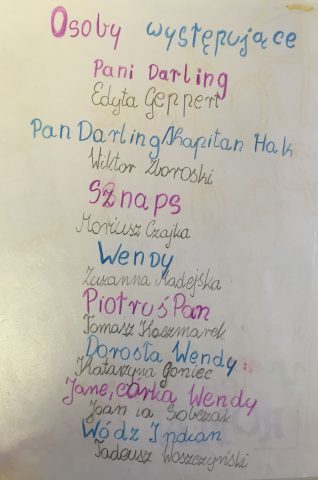 Osoby występujące
Pani Darling
Edyta Geppert
Pan Darling/Kapitan Hak
Wiktor Zboroski
Sznaps
Mariusz Czajka
Wendy
Zuzanna Madejska
Piotruś Pan
Tomasz Kaczmarek
Dorosła Wendy
Katarzyna Goniec
Jane, córka Wendy
Joanna Sobczak
Wódz Indian
Tadeusz Woszczyński